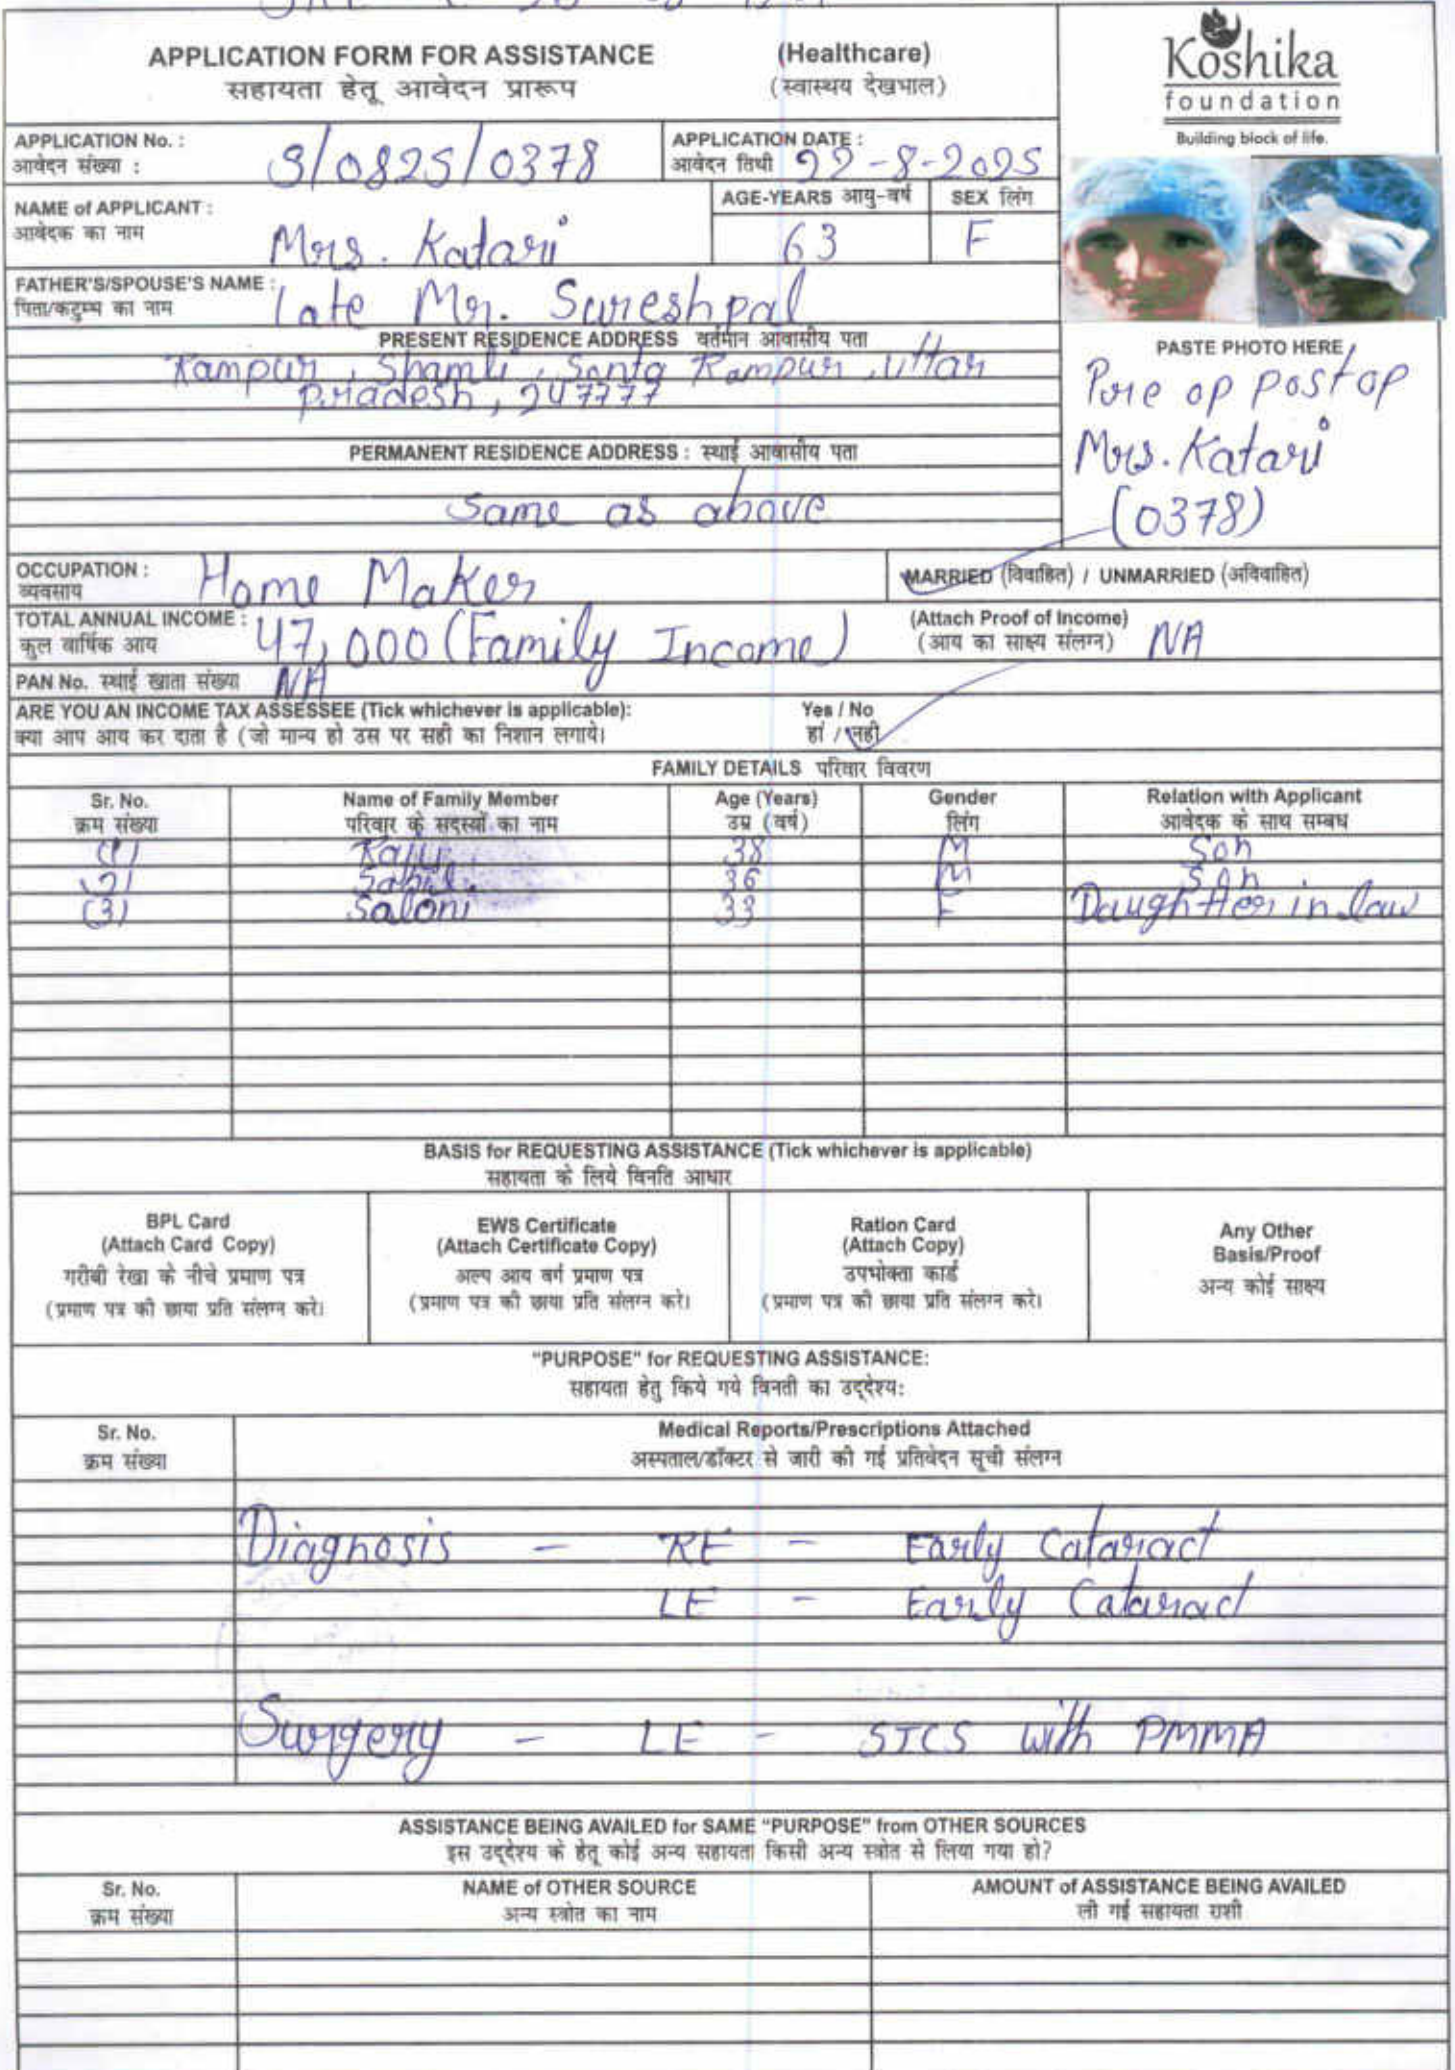 APPLICATION FORM FOR ASSISTANCE (Healthcare)
सहायता हेतू आवेदन प्रारूप (स्वास्थय देखभाल)
Koshika
foundation
Building block of life.
APPLICATION No. : S/0825/0378
आवेदन संख्या :
APPLICATION DATE : 22-8-2025
आवेदन तिथी
NAME of APPLICANT : Mrs. Katari
आवेदक का नाम
AGE-YEARS आयु-वर्ष 63
SEX लिंग F
FATHER'S/SPOUSE'S NAME : Late Mr. Sureshpal
पिता/कटुम्ब का नाम
PRESENT RESIDENCE ADDRESS वर्तमान आवासीय पता
Rampur, Shamli, Santa Rampur, Uttar
Pradesh, 247777
PERMANENT RESIDENCE ADDRESS : स्थाई आवासीय पता
Same as above
PASTE PHOTO HERE
Pre op post op
Mrs. Katari
(0378)
OCCUPATION : Home Maker
व्यवसाय
MARRIED (विवाहित) / UNMARRIED (अविवाहित)
TOTAL ANNUAL INCOME : 47,000 (Family Income)
कुल वार्षिक आय
(Attach Proof of Income) NA
(आय का साक्ष्य संलग्न)
PAN No. स्थाई खाता संख्या NA
ARE YOU AN INCOME TAX ASSESSEE (Tick whichever is applicable): Yes / No
क्या आप आय कर दाता है (जो मान्य हो उस पर सही का निशान लगाये। हां / नही
FAMILY DETAILS परिवार विवरण
Sr. No. Name of Family Member Age (Years) Gender Relation with Applicant
क्रम संख्या परिवार के सदस्यों का नाम उम्र (वर्ष) लिंग आवेदक के साथ सम्बध
(1) Raju 38 M Son
(2) 36 M Son
(3) Saloni 33 F Daughter in law
BASIS for REQUESTING ASSISTANCE (Tick whichever is applicable)
सहायता के लिये विनति आधार
BPL Card
(Attach Card Copy)
गरीबी रेखा के नीचे प्रमाण पत्र
(प्रमाण पत्र की छाया प्रति संलग्न करे।
EWS Certificate
(Attach Certificate Copy)
अल्प आय वर्ग प्रमाण पत्र
(प्रमाण पत्र की छाया प्रति संलग्न करे।
Ration Card
(Attach Copy)
उपभोक्ता कार्ड
(प्रमाण पत्र की छाया प्रति संलग्न करे।
Any Other
Basis/Proof
अन्य कोई साक्ष्य
"PURPOSE" for REQUESTING ASSISTANCE:
सहायता हेतु किये गये विनती का उद्देश्य:
Sr. No. Medical Reports/Prescriptions Attached
क्रम संख्या अस्पताल/डॉक्टर से जारी की गई प्रतिवेदन सूची संलग्न
Diagnosis - RE - Early Cataract
LE - Early Cataract
Surgery - LE - SICS with PMMA
ASSISTANCE BEING AVAILED for SAME "PURPOSE" from OTHER SOURCES
इस उद्देश्य के हेतू कोई अन्य सहायता किसी अन्य स्त्रोत से लिया गया हो?
Sr. No. NAME of OTHER SOURCE AMOUNT of ASSISTANCE BEING AVAILED
क्रम संख्या अन्य स्त्रोत का नाम ली गई सहायता राशी